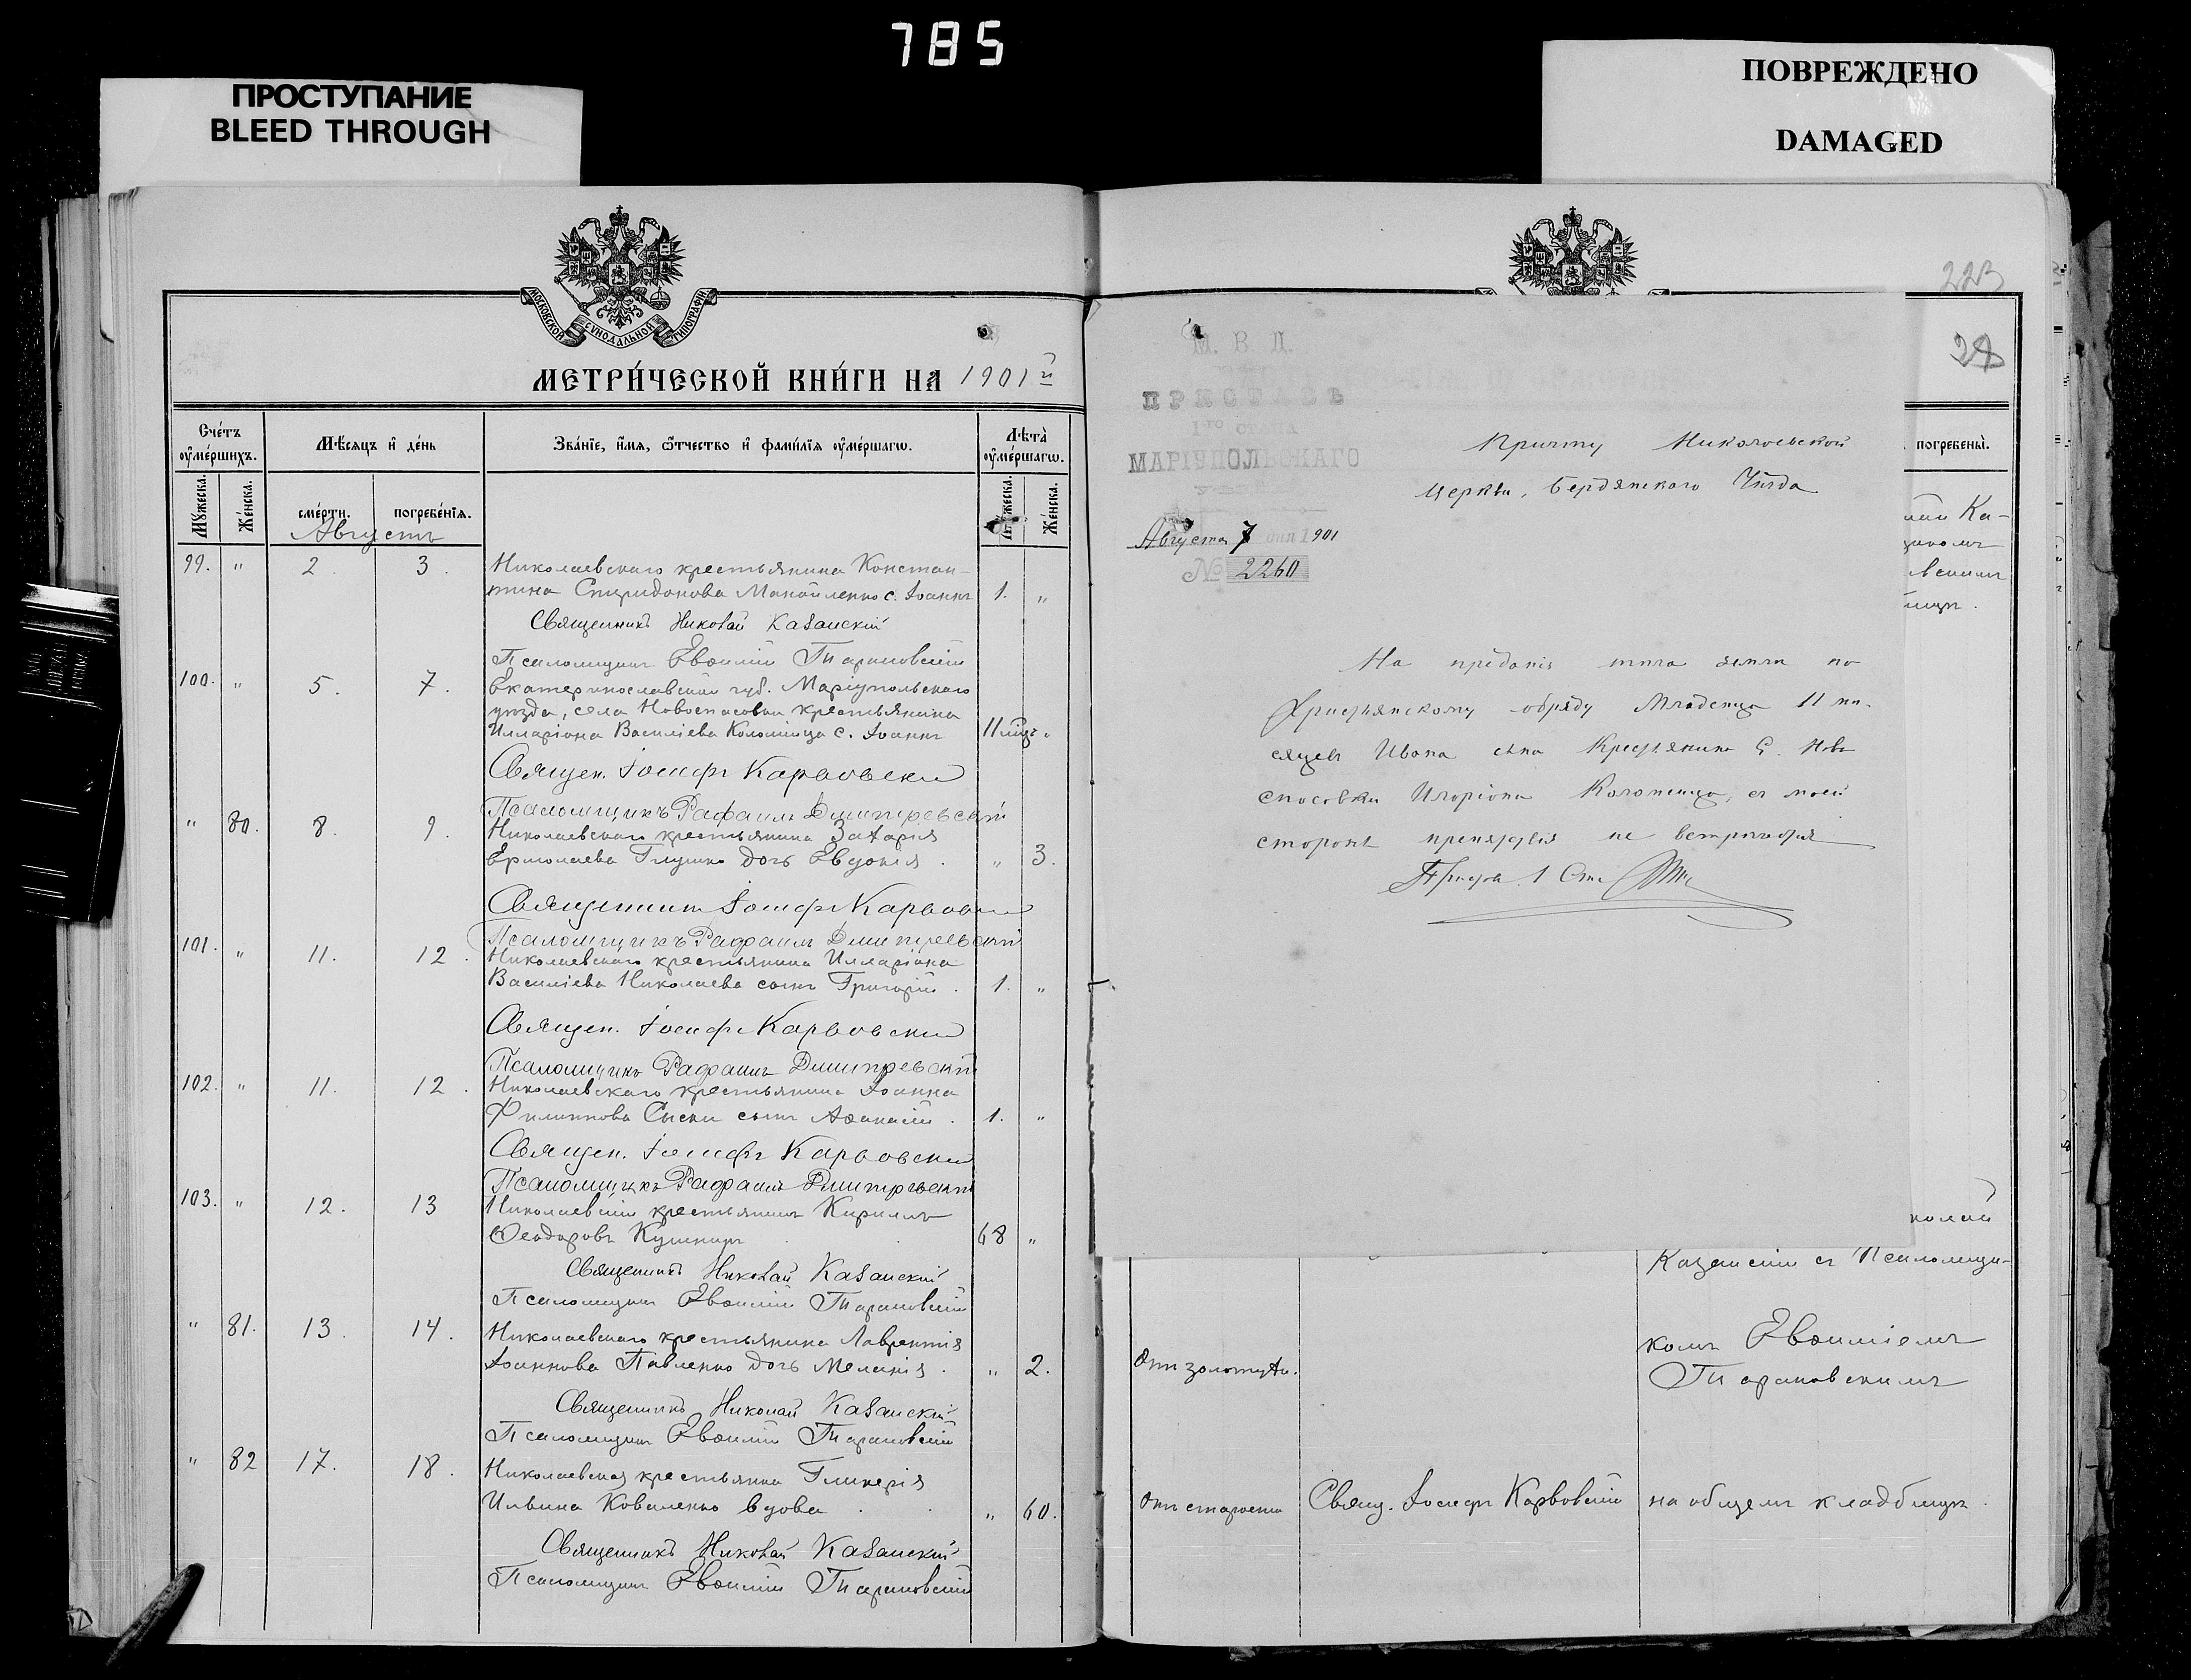 785
ПРОСТУПАНИЕ
BLEED THROUGH
ПОВРЕЖДЕНО
DAMAGED
МОСКОВСКОЙ СѴНОДАЛЬНОЙ ТИПОГРАФІИ
МЕТРИ́ЧЕСКОЙ КНИ́ГИ НА 1901 й
Счéтъ ᲂумéршихъ.
Мѣ́сяцъ и҆ дéнь
Звáнїе, и҆́мя, ѻ҆́тчество и҆ фами́лїя ᲂумéршагѡ.
Лѣ́та ᲂумéршагѡ.
Мꙋ́жеска.
Жéнска.
смéрти.
погребéнїя.
Мꙋ́жеска.
Жéнска.
Августъ
99. " 2. 3. Николаевскаго крестьянина Констан-
тина Спиридонова Манойленко с. Іоаннъ 1. "
Священникъ Николай Казанскій
Псаломщикъ Евѳимій Тарановскій
100. " 5. 7. Екатеринославской губ. Маріупольскаго
уѣзда, села Новоспасовки крестьянина
Илларіона Василіева Коломійца с. Іоаннъ 11 мцъ "
Священ. Іосифъ Карвовскій
Псаломщикъ Рафаилъ Дмитревскій
" 80. 8. 9. Николаевскаго крестьянина Захарія
Ермолаева Глушко дочь Евдокія. " 3.
Священникъ Іосифъ Карвовскій
Псаломщикъ Рафаилъ Дмитревскій
101. " 11. 12. Николаевскаго крестьянина Илларіона
Василіева Николаева сынъ Григорій. 1. "
Священ. Іосифъ Карвовскій
Псаломщикъ Рафаилъ Дмитревскій
102. " 11. 12. Николаевскаго крестьянина Іоанна
Филиппова Сыски сынъ Аѳанасій. 1. "
Священ. Іосифъ Карвовскій
Псаломщикъ Рафаилъ Дмитревскій
103. " 12. 13 Николаевскій крестьянинъ Кириллъ
Ѳеодоровъ Кушниръ 68 "
Священникъ Николай Казанскій
Псаломщикъ Евѳимій Тарановскій
" 81. 13. 14. Николаевскаго крестьянина Лаврентія
Іоаннова Павленко дочь Меланія. " 2.
Священникъ Николай Казанскій
Псаломщикъ Евѳимій Тарановскій
" 82 17. 18. Николаевская крестьянка Гликерія
Ильина Коваленко вдова. " 60.
Священникъ Николай Казанскій
Псаломщикъ Евѳимій Тарановскій
223
28
погребены̀.
М. В. Д.
ПРИСТАВЪ
1го стана
МАРІУПОЛЬСКАГО
Августа 7 дня 1901
№ 2260
Причту Николаевской
церкви, Бердянскаго Уѣзда
На преданія тѣла земли по
Христьянскому обряду Младенца 11 мѣ-
сяцевъ Ивана сына Крестьянина С. Ново
спасовки Иларіона Коломійца, съ моей
стороны препятствія не встрѣчается
Пристав 1 Ста
Казанскій съ Псаломщи-
комъ Евѳиміемъ
Тарановскимъ
Отъ золотухи.
Отъ старости
Свящ. Іосифъ Карвовскій
на общемъ кладбищѣ.